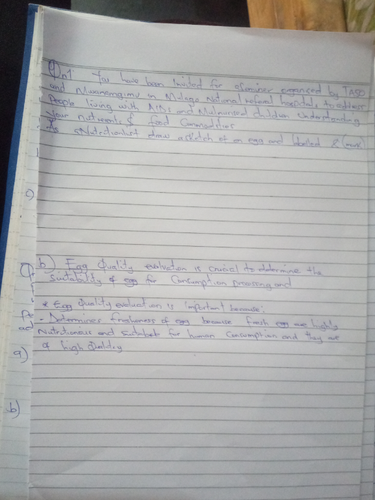 Qn1 You have been invited for seminar organised by TASO
and Mwanamugimu in Mulago National referral hospital, to address
people living with AIDS and Malnourised children understanding
your nutrients & food Commodities
As Nutritionist draw a sketch of an egg and labeled
b) Egg Quality evaluation is crucial to determine the
suitability of egg for Consumption processing and
* Egg Quality evaluation is important because;
- Determines freshness of egg because fresh egg are highly
Nutritiousness and suitable for human Consumption and they are
of high Quality
a)
b)